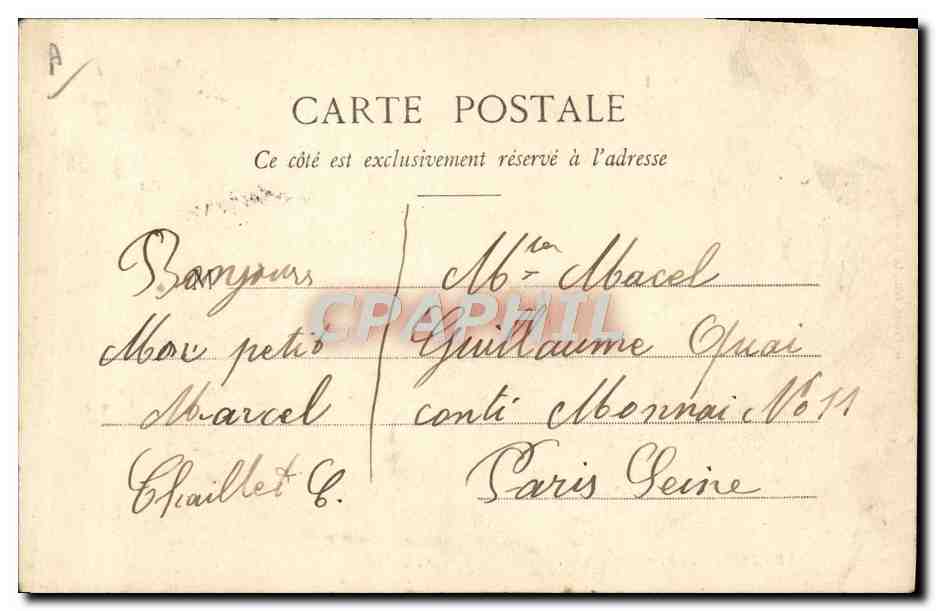 CARTE POSTALE
Ce côté est exclusivement réservé à l'adresse
Bonjours
Mon petit
Marcel
Chaillet C.
Mr Macel
Guillaume Quai
conti Monnai No 11
Paris Seine
CPAPHIL